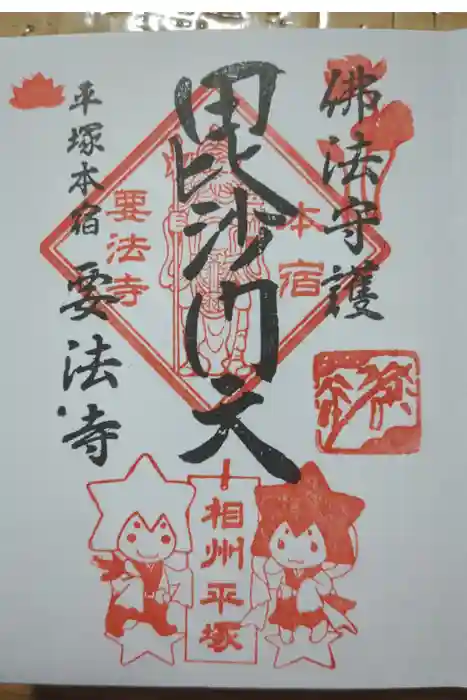 佛法守護
本宿
毘沙門天
要法寺
平塚本宿
要法寺
相州平塚